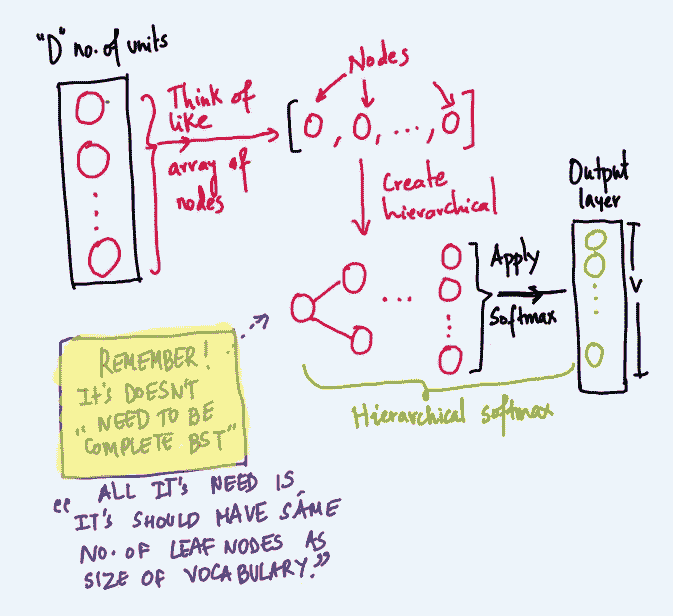 "D" no. of units
Think of
like
array of
nodes
Nodes
[ , , ... , ]
Create
hierarchical
Output
layer
Apply
Softmax
V
Hierarchical softmax
REMEMBER!
It's DOESN'T
"NEED TO BE
COMPLETE BST"
"ALL IT'S NEED IS,
IT'S SHOULD HAVE SAME
NO. OF LEAF NODES AS
SIZE OF VOCABULARY."